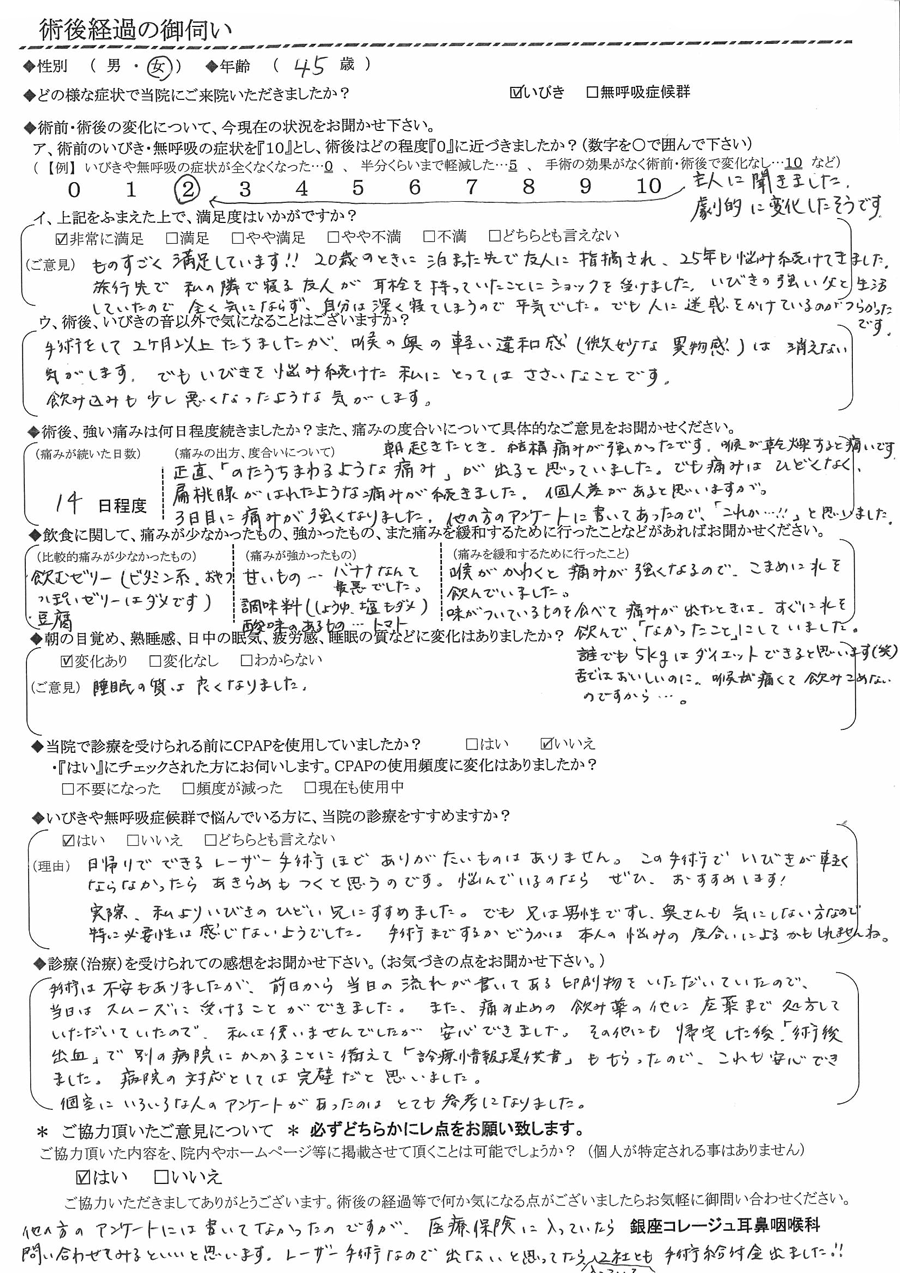 術後経過の御伺い
◆性別 ( 男 ・ 女 ) ◆年齢 ( 45 歳 )
◆どの様な症状で当院にご来院いただきましたか? ☑いびき □無呼吸症候群
◆術前・術後の変化について、今現在の状況をお聞かせ下さい。
ア、術前のいびき・無呼吸の症状を『10』とし、術後はどの程度『0』に近づきましたか?(数字を○で囲んで下さい)
(【例】 いびきや無呼吸の症状が全くなくなった…0 、 半分くらいまで軽減した…5 、 手術の効果がなく術前・術後で変化なし…10 など)
0 1 2 3 4 5 6 7 8 9 10
主人に聞きました。
劇的に変化したそうです
イ、上記をふまえた上で、満足度はいかがですか?
☑非常に満足 □満足 □やや満足 □やや不満 □不満 □どちらとも言えない
(ご意見) ものすごく満足しています!! 20歳のときに泊まった先で友人に指摘され、25年も悩み続けてきました。
旅行先で私の隣で寝る友人が耳栓を持っていたことにショックを受けました。いびきの強い父と生活
していたので全く気にならず、自分は深く寝てしまうので平気でした。でも人に迷惑をかけているのがつらかった
です。
ウ、術後、いびきの音以外で気になることはございますか?
手術をして2ケ月以上たちましたが、喉の奥の軽い違和感(微妙な異物感)は消えない
気がします。でもいびきを悩み続けた私にとってはささいなことです。
飲み込みも少し悪くなったような気がします。
◆術後、強い痛みは何日程度続きましたか?また、痛みの度合いについて具体的なご意見をお聞かせください。
(痛みが続いた日数) (痛みの出方、度合いについて) 朝起きたとき、結構痛みが強かったです。喉が乾燥すると痛いです
14 日程度
正直、「のたうちまわるような痛み」が出ると思っていました。でも痛みはひどくなく、
扁桃腺がはれたような痛みが続きました。個人差があると思いますが。
3日目に痛みが強くなりました。他の方のアンケートに書いてあったので、「これか…!!」と思いました。
◆飲食に関して、痛みが少なかったもの、強かったもの、また痛みを緩和するために行ったことなどがあればお聞かせください。
(比較的痛みが少なかったもの) (痛みが強かったもの) (痛みを緩和するために行ったこと)
飲むゼリー(ビタミン系、おやつ
っぽいゼリーはダメです)
・豆腐
甘いもの… バナナなんて
最悪でした。
調味料(しょうゆ、塩もダメ)
酸味のあるもの…トマト
喉がかわくと痛みが強くなるので、こまめに水を
飲んでいました。
味がついているものを食べて痛みが出たときは、すぐに水を
飲んで、「なかったこと」にしていました。
誰でも5kgはダイエットできると思います(笑)
舌ではおいしいのに、喉が痛くて飲みこめない
のですから…。
◆朝の目覚め、熟睡感、日中の眠気、疲労感、睡眠の質などに変化はありましたか?
☑変化あり □変化なし □わからない
(ご意見) 睡眠の質は良くなりました。
◆当院で診療を受けられる前にCPAPを使用していましたか? □はい ☑いいえ
・『はい』にチェックされた方にお伺いします。CPAPの使用頻度に変化はありましたか?
□不要になった □頻度が減った □現在も使用中
◆いびきや無呼吸症候群で悩んでいる方に、当院の診療をすすめますか?
☑はい □いいえ □どちらとも言えない
(理由) 日帰りでできるレーザー手術ほどありがたいものはありません。この手術でいびきが軽く
ならなかったらあきらめもつくと思うのです。悩んでいるのなら ぜひ、おすすめします!
実際、私よりいびきのひどい兄にすすめました。でも兄は男性ですし、奥さんも気にしない方なので
特に必要性は感じないようでした。 手術までするかどうかは本人の悩みの度合いによるかもしれませんね。
◆診療(治療)を受けられての感想をお聞かせ下さい。(お気づきの点をお聞かせ下さい。)
手術は不安もありましたが、前日から当日の流れが書いてある印刷物をいただいていたので、
当日はスムーズに受けることができました。また、痛み止めの飲み薬の他に座薬まで処方して
いただいていたので、私は使いませんでしたが安心できました。その他にも帰宅した後、「術後
出血」で別の病院にかかることに備えて「診療情報提供書」ももらったので、これも安心でき
ました。病院の対応としては完璧だと思いました。
個室にいろいろな人のアンケートがあったのはとても参考になりました。
* ご協力頂いたご意見について * 必ずどちらかにレ点をお願い致します。
ご協力頂いた内容を、院内やホームページ等に掲載させて頂くことは可能でしょうか? (個人が特定される事はありません)
☑はい □いいえ
ご協力いただきましてありがとうございます。術後の経過等で何か気になる点がございましたらお気軽に御問い合わせください。
銀座コレージュ耳鼻咽喉科
他の方のアンケートには書いてなかったのですが、医療保険に入っていたら
問い合わせてみるといいと思います。レーザー手術なので出ないと思ってたら、2社とも手術給付金出ました!!